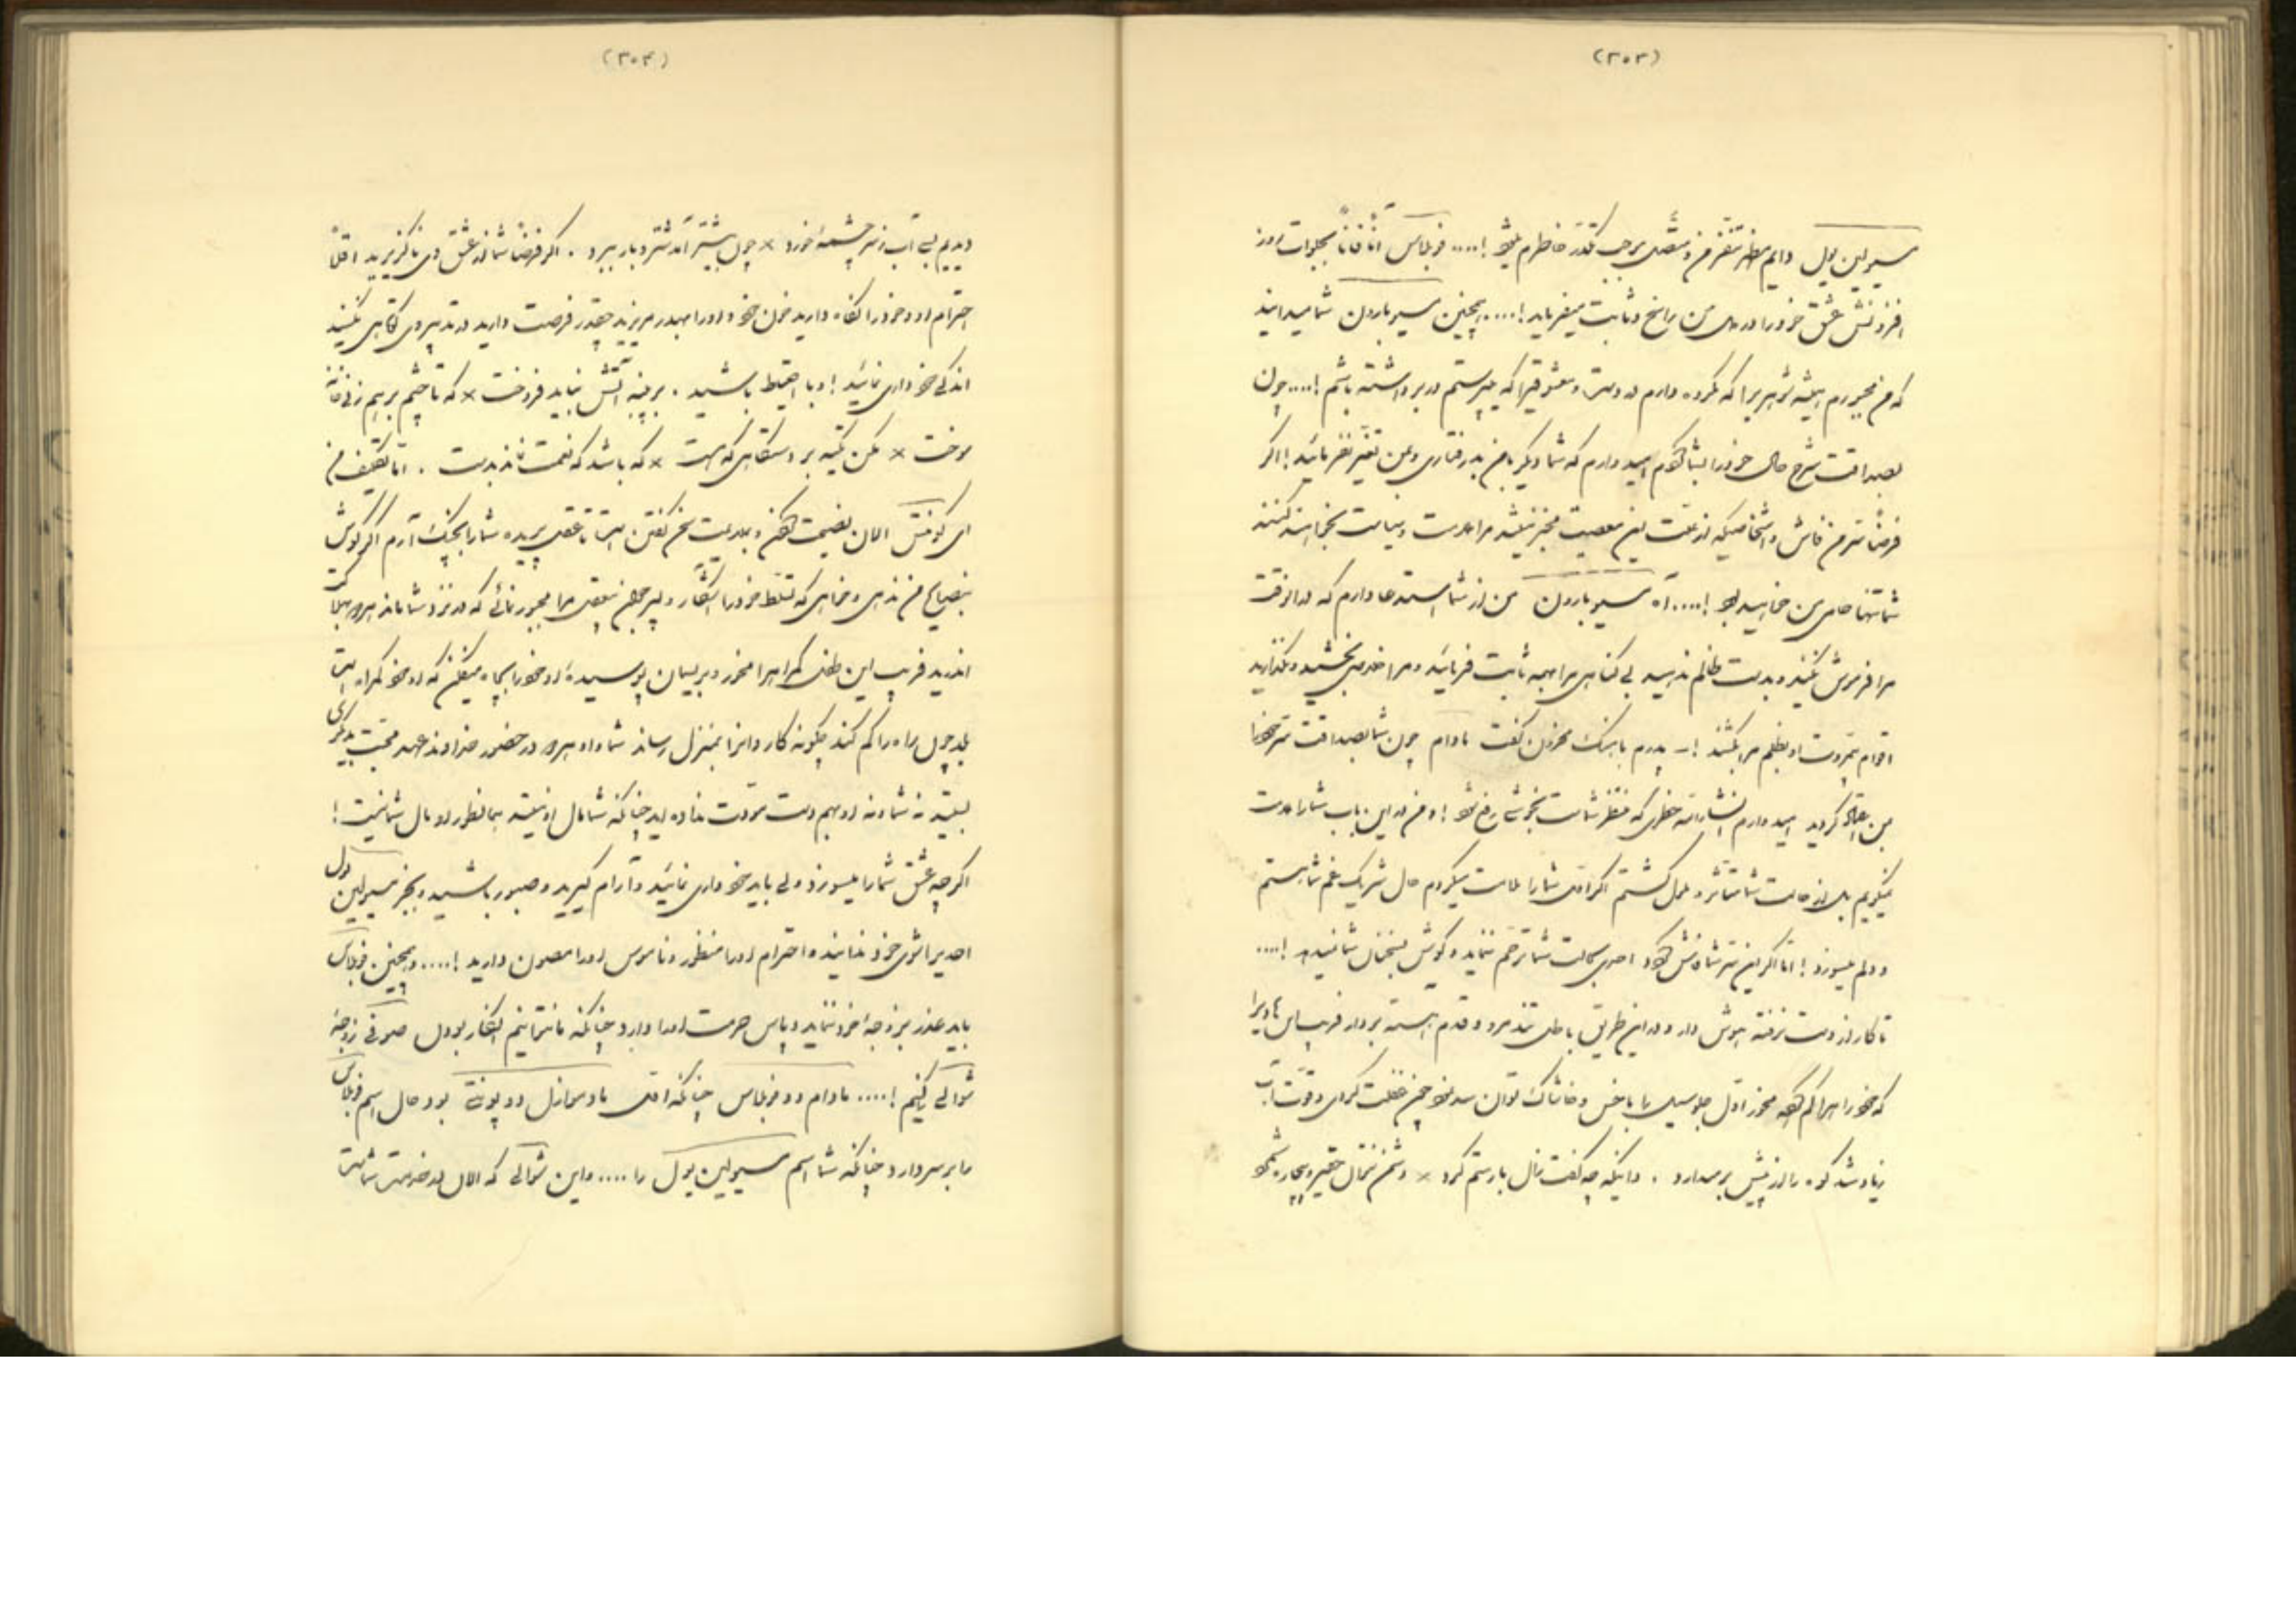 (٣٠٣)
مسیو لین پول دایم مظهر تنفر من و متصل موجب تکدر خاطرم میشود !.... فربلاس آناً فآناً بجلوات روز
افزونش عشق خود را در دل من راسخ و ثابت میفرماید !.... همچنین مسیو بارون شما میدانید
که من مجبورم همیشه شوهریرا که مکروه دارم در دست و معشوقیرا که میپرستم در بر داشته باشم !.... چون
بصداقت شرح حال خود را بشما گفتم امیدوارم که شما دیگر با من بدرفتاری و بمن تغیر نفرمائید ! اگر
فرضاً سر من فاش و اشخاصیکه از علت این معصیت مخبر نیستند مرا ملامت و سیاست بخواهند کنند
شما تنها حامی من خواهید بود !.... آه مسیو بارون من از شما استدعا دارم که در آنوقت
مرا فراموش نکنید و بدست ظالم ندهید بی گناهی مرا بهمه ثابت فرمائید و مرا خلاصی بخشید و نگذارید
اقوام بی‌مروت او بظلم مرا بکشند ! – پدرم باهنگ محزون گفت مادام چون شما بصداقت سر خود را
بمن اعتماد کردید امیدوارم انشاءالله خطری که منتظر شماست بخوشی رفع شود ! و من در این باب شما را ملامت
نمیگویم بلکه از حالت شما متاثر و ملول گشتم اگر اول شما را ملامت میکردم حال شریک غم شما هستم
و دلم میسوزد ! اما اگر این سر شما فاش شود احدی بحالت شما ترحم ننماید و گوش بسخنان شما نمیدهد !....
تا کار از دست نرفته هوش دار و در این طریق باطل تند مرو و قدم آهسته بردار فریب این
که خود را هم گم کرده مخور اول جلو سیل را با خس و خاشاک توان سد نمود چون غفلت کردی و قوت آب
زیاد شد کوه را از پیش برمیدارد . دانیکه چه گفت زال با رستم گرد × دشمن نتوان حقیر و بیچاره شمرد
(٣٠٤)
دیدیم بسی آب ز سر چشمه خورد × چون بیشتر آمد شتر و بار ببرد . اگر فرضاً شما از عشق وی ناگزیرید اقلاً
احترام او و خود را نگاه دارید خون خود و او را بهدر مریزید چقدر فرصت دارید در تدبیر وی کوتاهی نکنید
اندکی خودداری نمائید ! و با احتیاط باشید . بر پنبه آتش نباید فروخت × که تا چشم بر هم زنی خانه
سوخت × مکن تکیه بر دستگاهی که هست × که باشد که نعمت نماند بدست . اما تکلیف من
ای کونتس الان نصیحت کردن و بملایمت سخن گفتن است تا عقل پریده شما را بچنگ آرم اگر گوش
بنصایح من ندهی و خواهی که تسلط خود را آشکار و
اندرید فریب این طفل گمراه را مخور و بریسمان پوسیده او خود را بچاه میفکن که او خود گمراه است
بلد چون راه را گم کند چگونه کاروانرا بمنزل رساند شما و او هر دو در حضور خداوند عهد محبت بدیگری
بستید نه شما و نه او بهم دست مودت نداده اید چنانکه شما مال او نیستید همانطور او مال شما نیست !
اگر چه عشق شما را میسوزد ولی باید خودداری نمائید و آرام گیرید و صبور باشید و بجز مسیو لین پول
احدیرا شوی خود ندانید و احترام او را منظور و ناموس او را مصون دارید !.... و همچنین فربلاس
باید عذر بر زوجه خود نماید و پاس حرمت او را دارد چنانکه ما نتوانیم انکار بودن صوفی زوجه
شوالی را کنیم !.... مادام دو فربلاس چنانکه اول مادموازل دو پونتی بود حال اسم فربلاس
را بر سر دارد چنانکه شما اسم مسیو لین پول را .... و این شوالی که الان در خدمت شماست